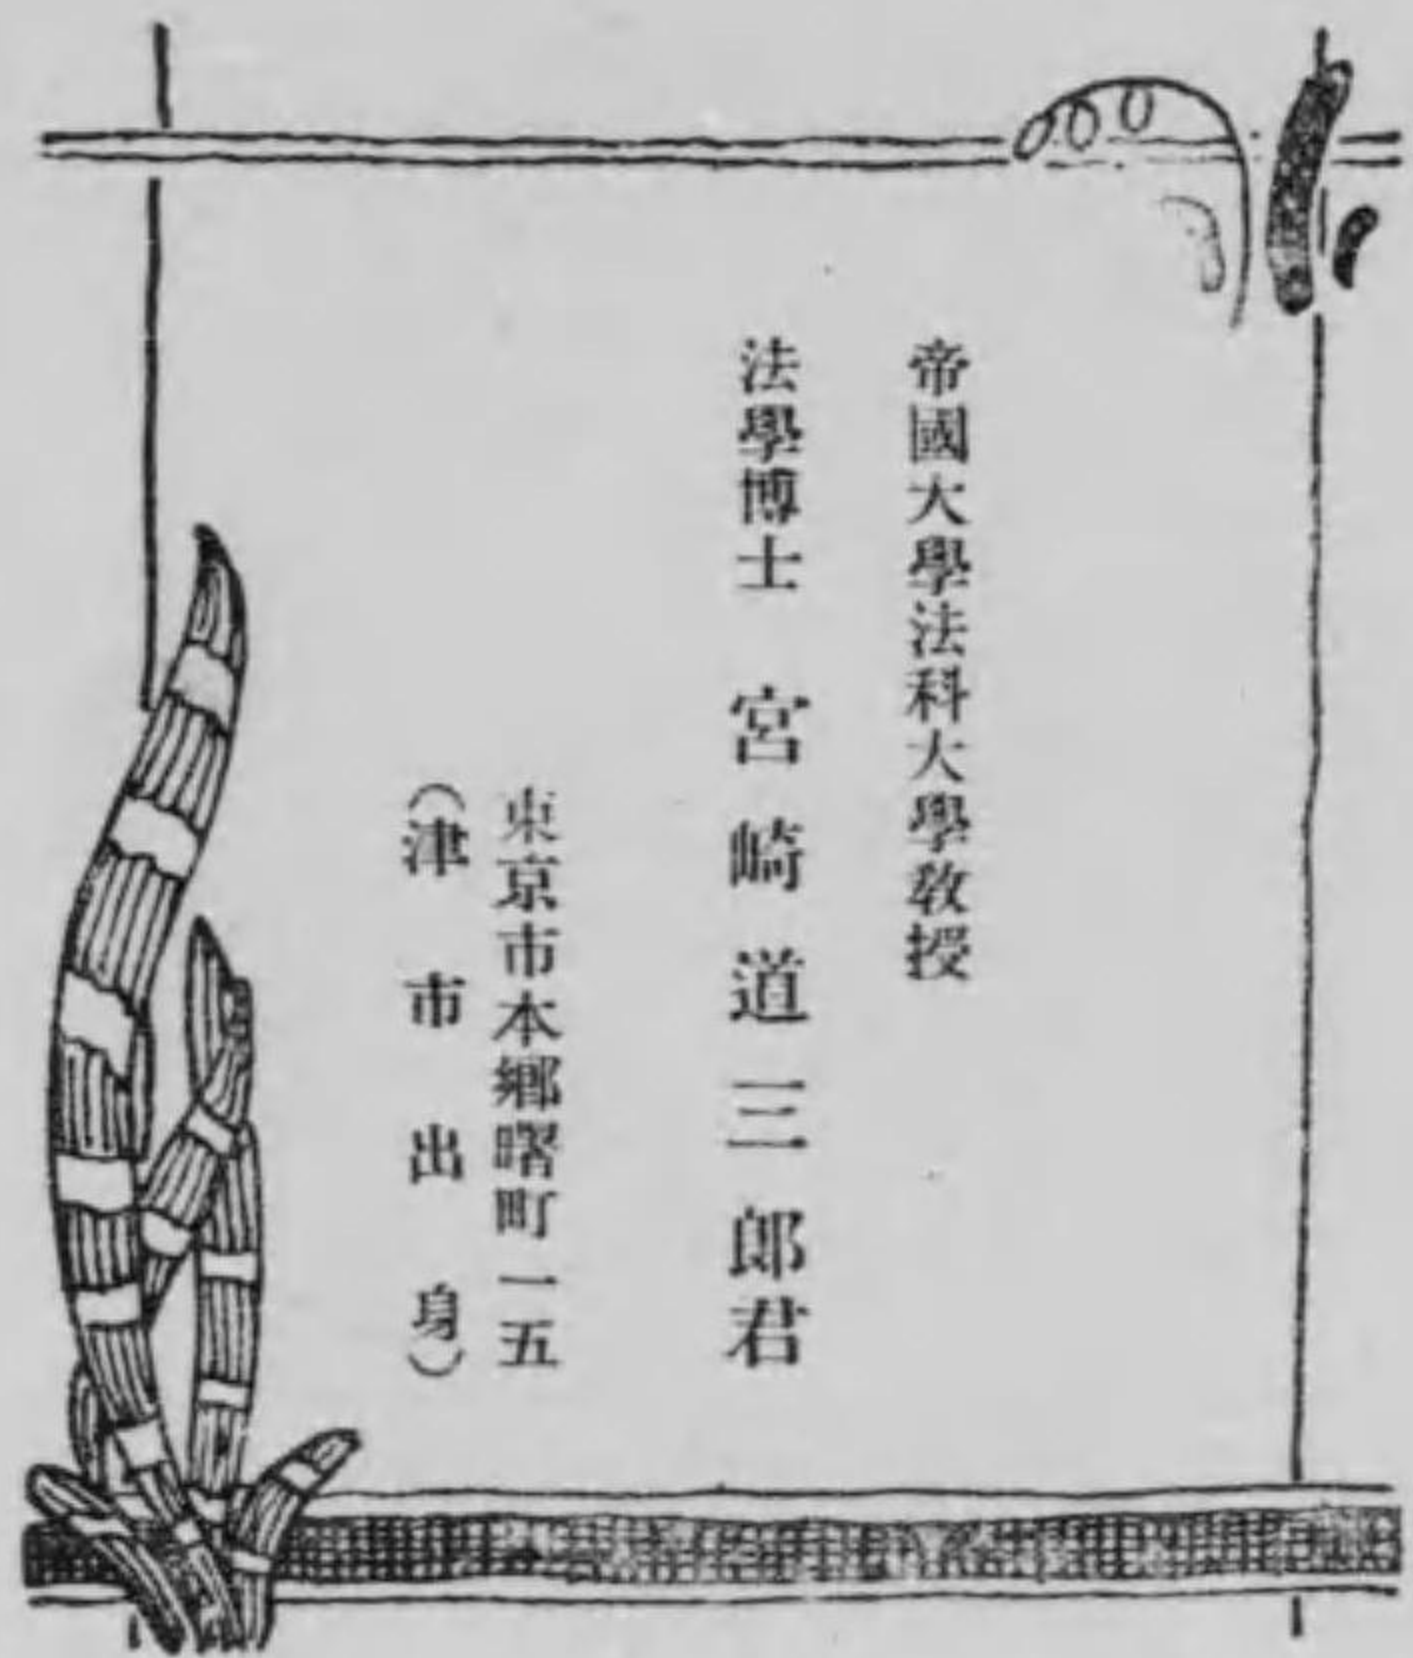 帝國大學法科大學教授
法學博士 宮崎道三郎君
東京市本鄕曙町一五
(津市出身)